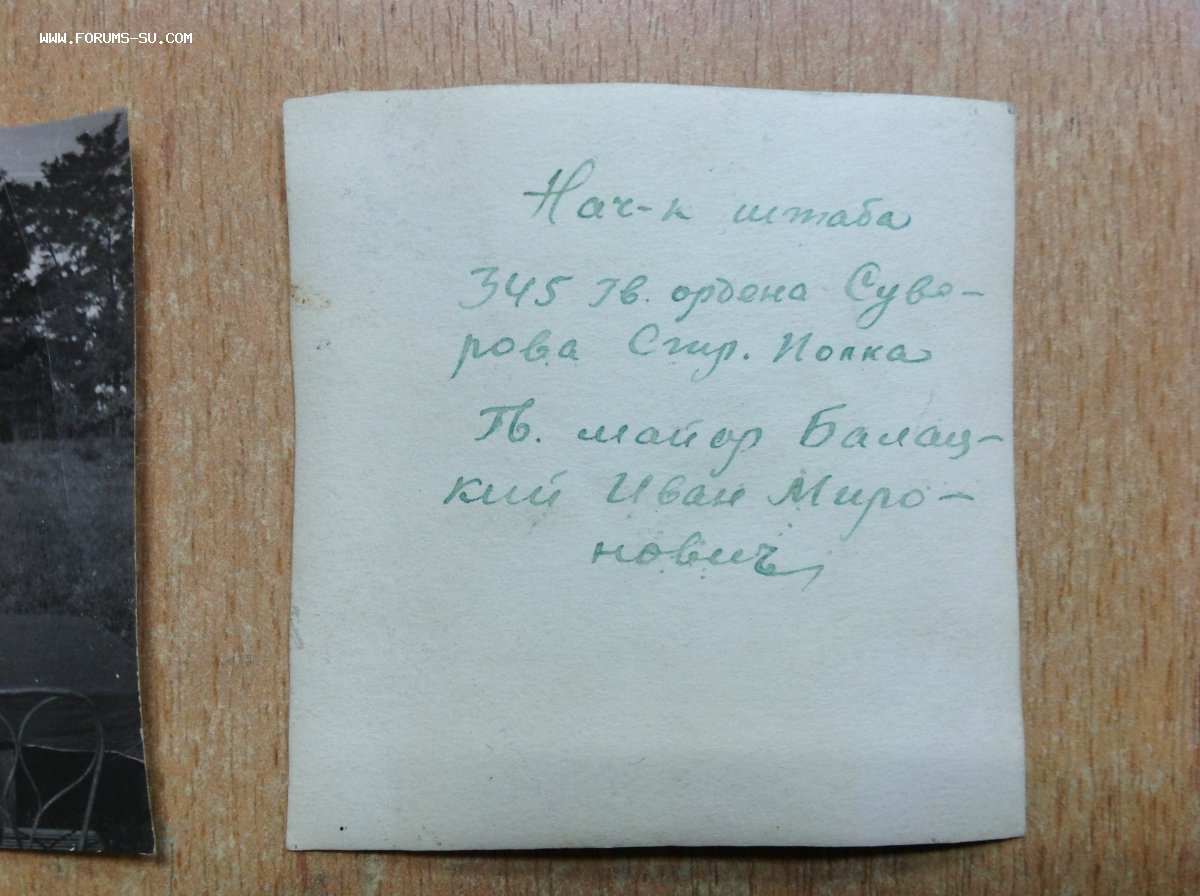 WWW.FORUMS-SU.COM
Нач-к штаба
345 Гв. ордена Суве-
рова Стр. Полка
Гв. майор Балац-
кий Иван Миро-
нович